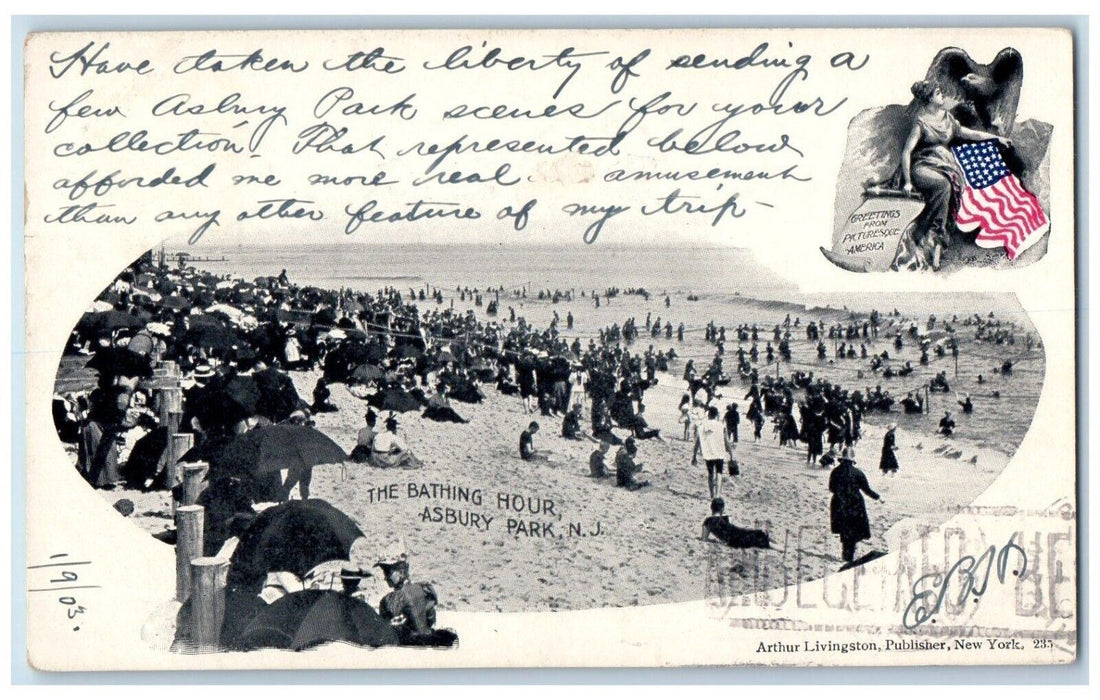 Have taken the liberty of sending a
few Asbury Park scenes for your
collection. That represented below
afforded me more real amusement
than any other feature of my trip-
GREETINGS
FROM
PICTURESQUE
AMERICA
THE BATHING HOUR,
ASBURY PARK, N.J.
1903.
Arthur Livingston, Publisher, New York. 235